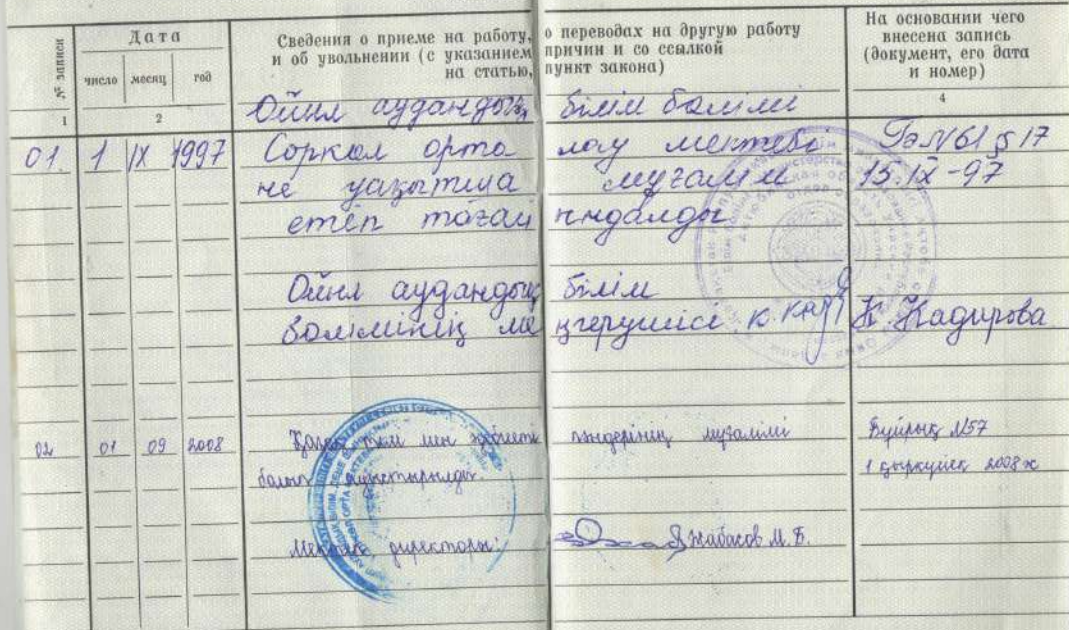 № записи
Дата
число месяц год
Сведения о приеме на работу, о переводах на другую работу
и об увольнении (с указанием причин и со ссылкой
на статью, пункт закона)
На основании чего
внесена запись
(документ, его дата
и номер)
1 2 4
Ойыл аудандық білім бөлімі
01. 1 IX 1997 Соркөл орта мектебі №61 § 17
не уақытша мұғалім 15.IX-97
етіп тағайындалды
Ойыл аудандық білім
бөлімінің меңгерушісі К. Кадирова
02 01 09 2008 Қазақ тілі мен әдебиеті пәндерінің мұғалімі Бұйрық №57
болып ауыстырылды. 1 қыркүйек 2008 ж
Мектеп директоры: Жабасов М.Б.